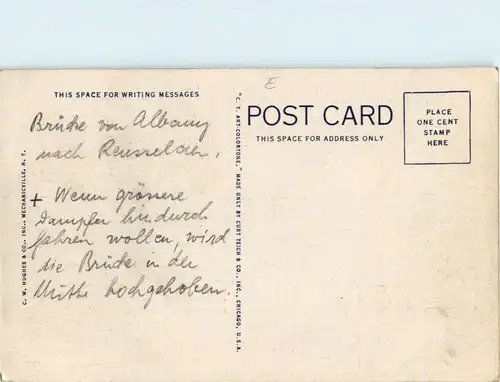 THIS SPACE FOR WRITING MESSAGES
Brücke von Albany
nach Rensselaer.
+ Wenn grössere
Dampfer hindurch
fahren wollen, wird
die Brücke in der
Mitte hochgehoben.
C. W. HUGHES & CO., INC., MECHANICVILLE, N. Y.
"C. T. ART-COLORTONE," MADE ONLY BY CURT TEICH & CO., INC., CHICAGO, U.S.A.
E
POST CARD
THIS SPACE FOR ADDRESS ONLY
PLACE
ONE CENT
STAMP
HERE